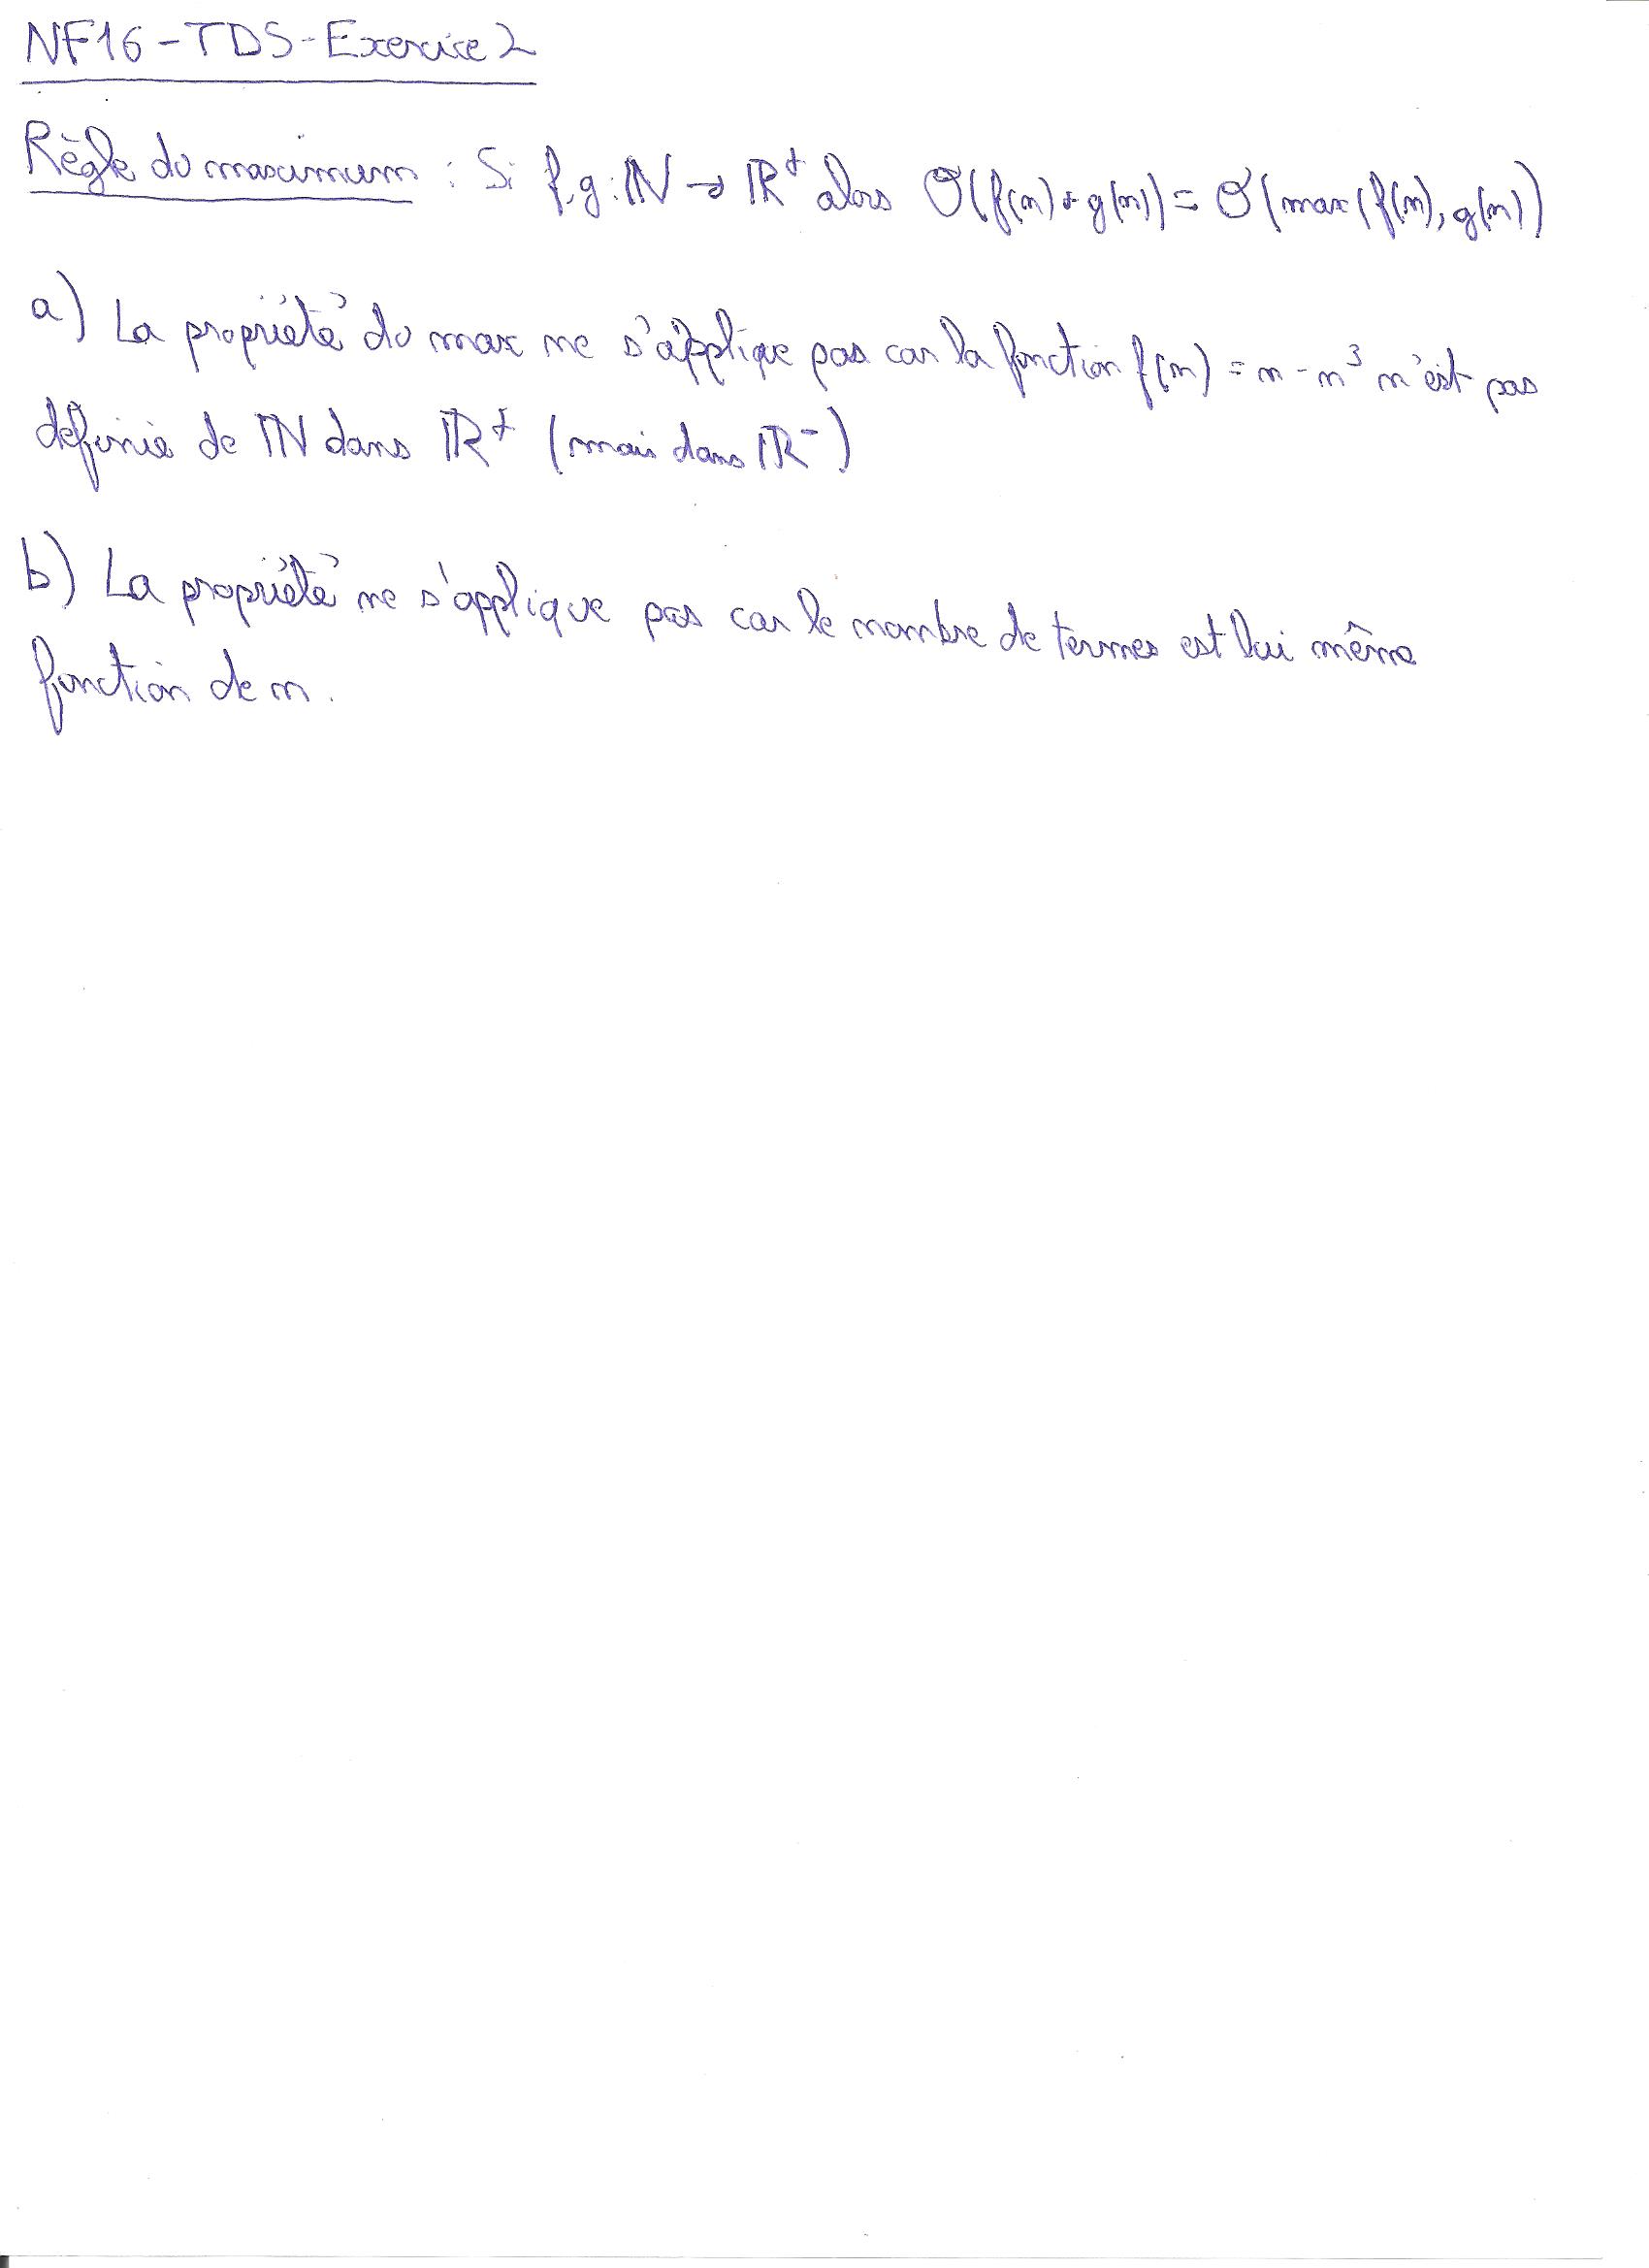 NF16 - TD5 - Exercice 2
Règle du maximum : Si f, g : ℕ → ℝ⁺ alors O(f(n) + g(n)) = O(max(f(n), g(n))
a) La propriété du max ne s'applique pas car la fonction f(n) = n - n³ n'est pas
définie de ℕ dans ℝ⁺ (mais dans ℝ⁻)
b) La propriété ne s'applique pas car le nombre de termes est lui même
fonction de n.